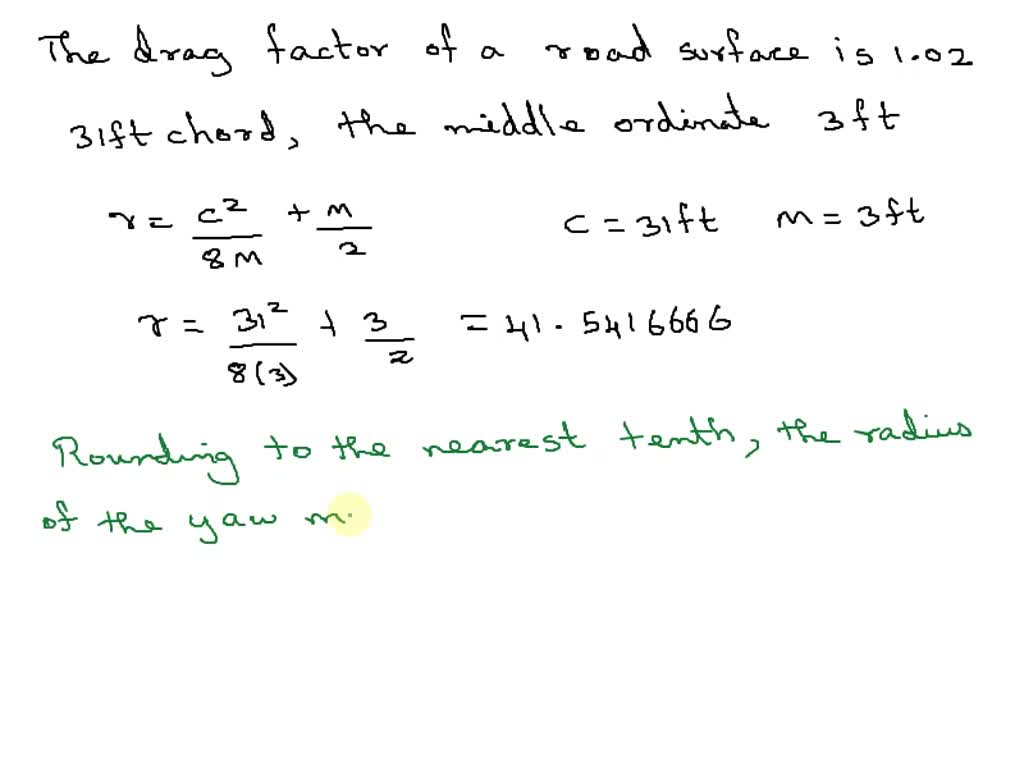 The drag factor of a road surface is 1.02
31ft chord, the middle ordinate 3ft
r = c²/8M + M/2 c = 31ft M = 3ft
r = 31²/8(3) + 3/2 = 41.5416666
Rounding to the nearest tenth, the radius
of the yaw m